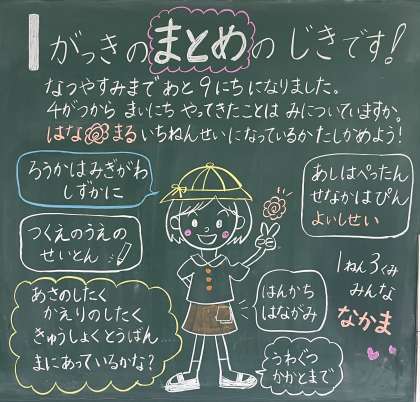 1がっきのまとめのじきです!
なつやすみまであと9にちになりました。
4がつから まいにち やってきたことは みについていますか。
はなまるいちねんせいになっているかたしかめよう!
ろうかはみぎがわ
しずかに
つくえのうえの
せいとん
あさのしたく
かえりのしたく
きゅうしょくとうばん……
まにあっているかな?
あしはぺったん
せなかはぴん
よいしせい
はんかち
はながみ
うわぐつ
かかとまで
1ねん3くみ
みんな
なかま